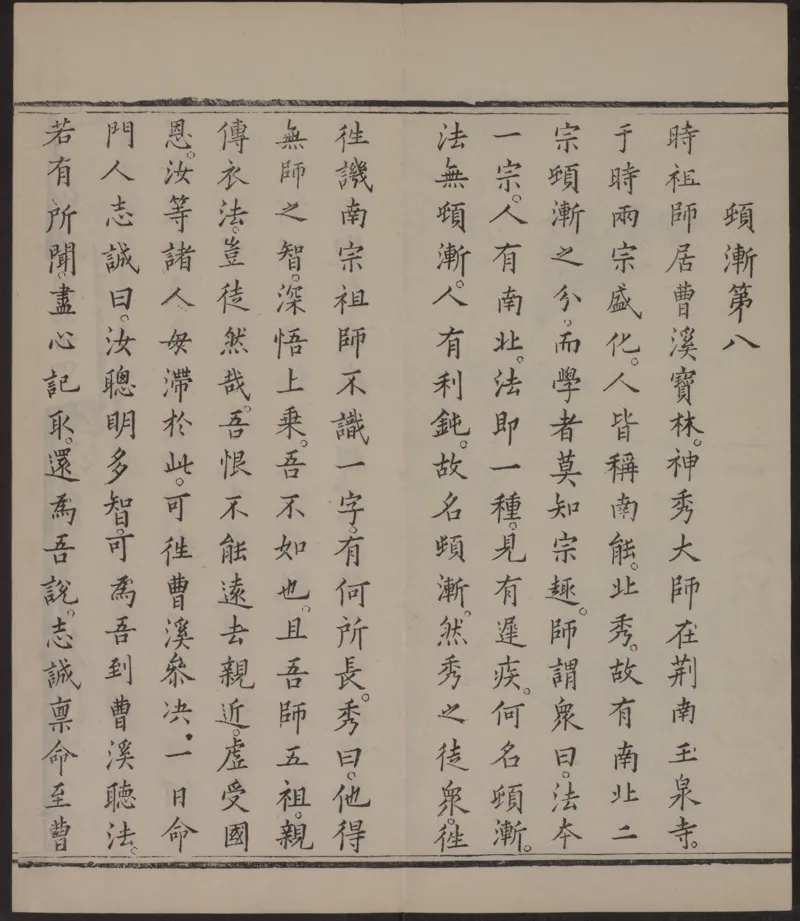 頓漸第八
時祖師居曹溪寶林。神秀大師在荆南玉泉寺。
于時兩宗盛化。人皆稱南能。北秀。故有南北二
宗頓漸之分。而學者莫知宗趣。師謂衆曰。法本
一宗。人有南北。法即一種。見有遲疾。何名頓漸。
法無頓漸。人有利鈍。故名頓漸。然秀之徒衆。徃
徃譏南宗祖師不識一字。有何所長。秀曰。他得
無師之智。深悟上乗。吾不如也。且吾師五祖。親
傳衣法。豈徒然哉。吾恨不能遠去親近。虛受國
恩。汝等諸人毋滯於此。可徃曹溪叅决。一日命
門人志誠曰。汝聰明多智。可爲吾到曹溪聽法。
若有所聞。盡心記取。還爲吾說。志誠禀命至曹